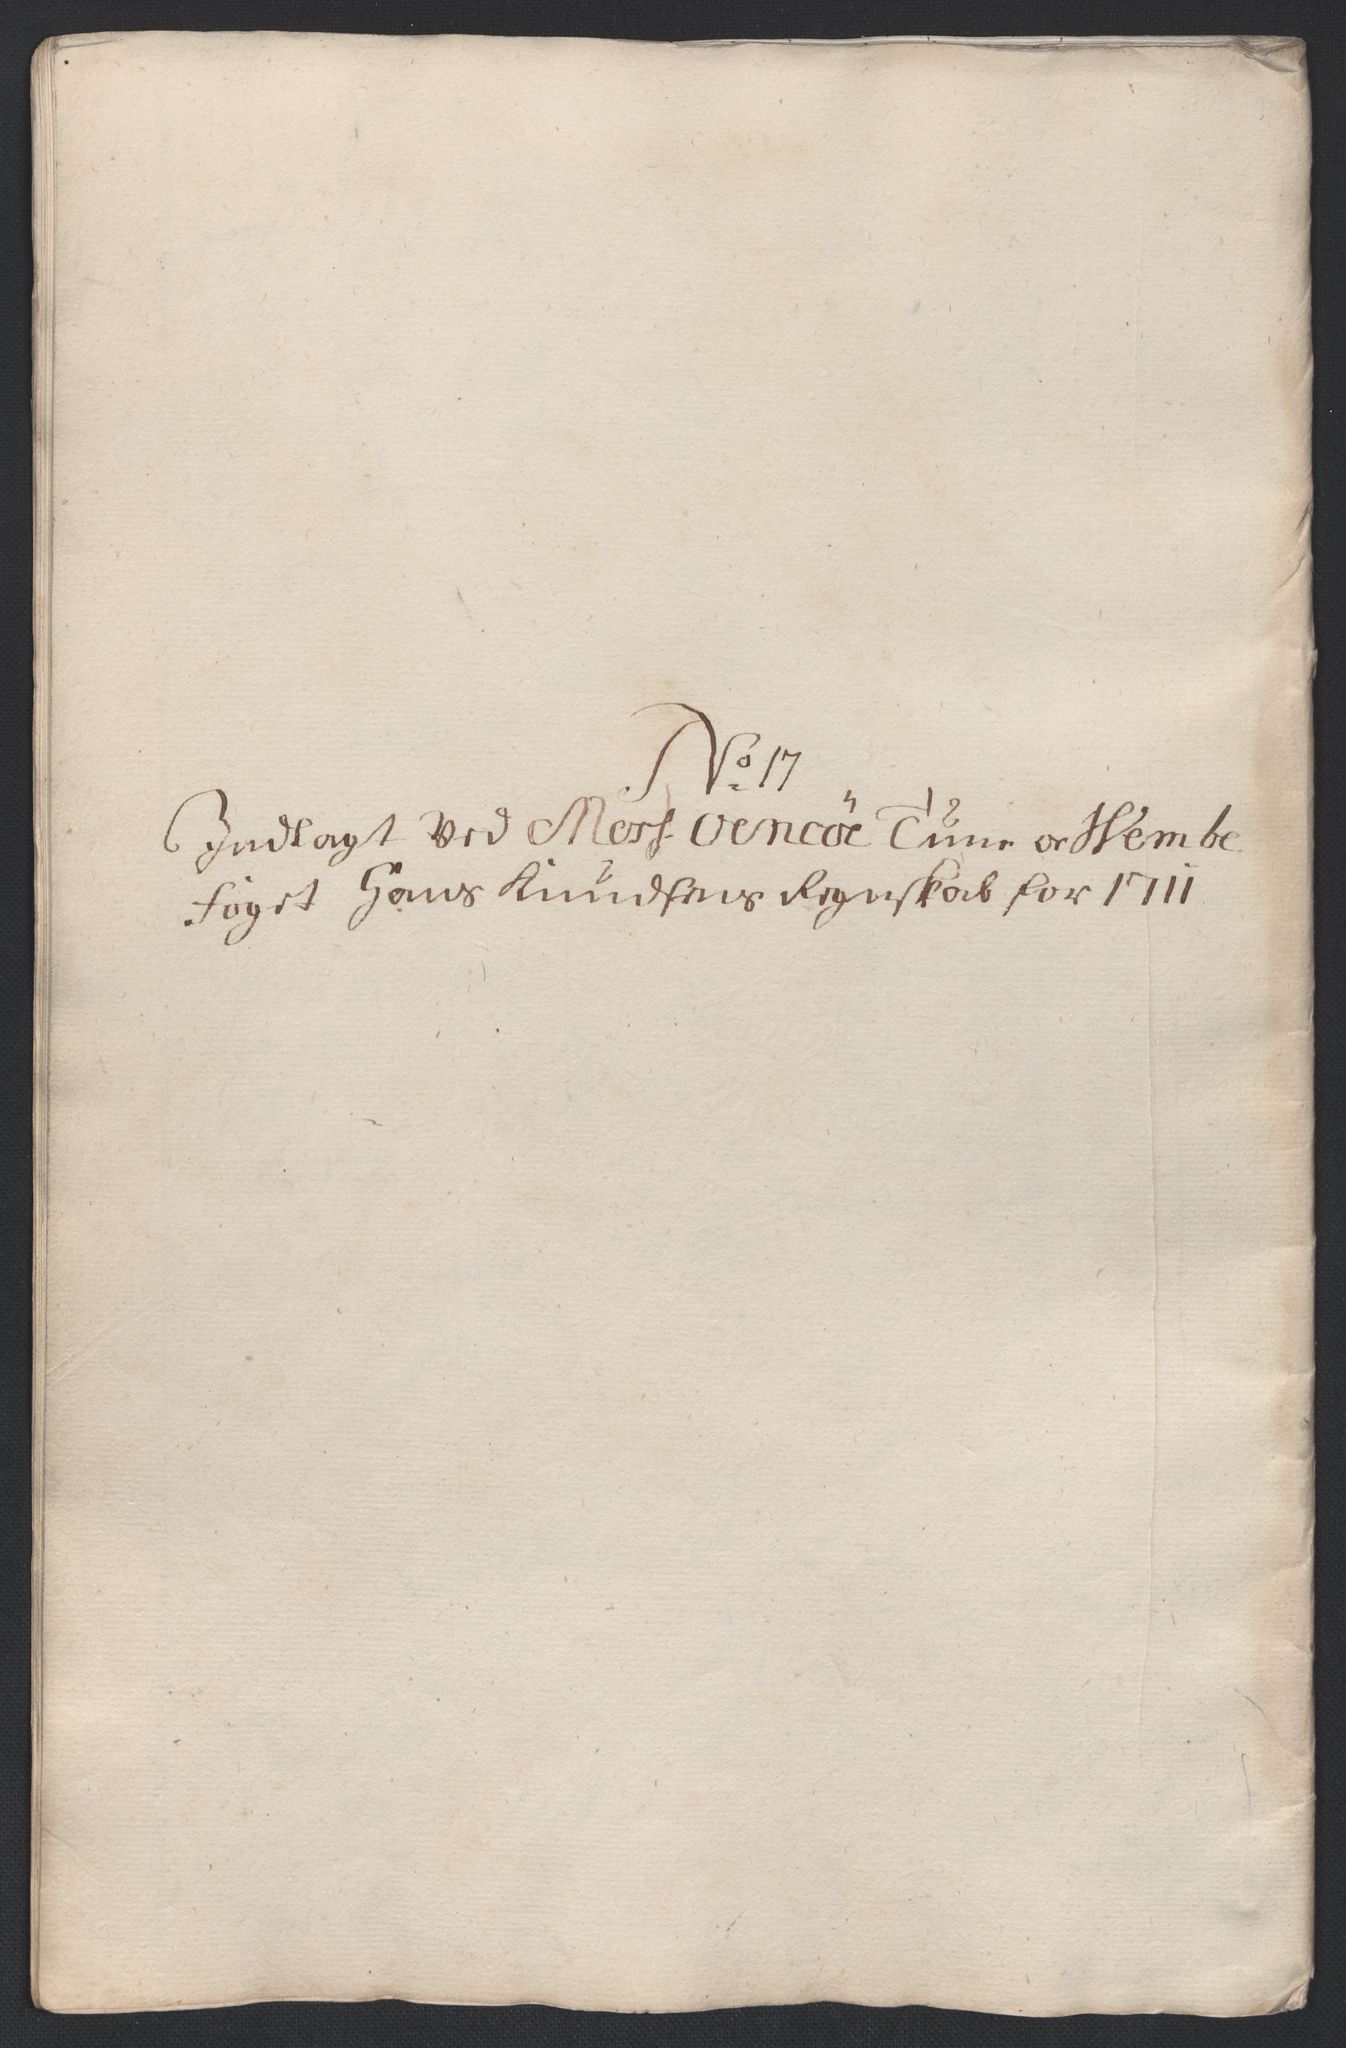 No 17
Indlagt Ved Moss Oencöe Tune oc Wembe
foget Hans Knudsens Regnskab for 1711